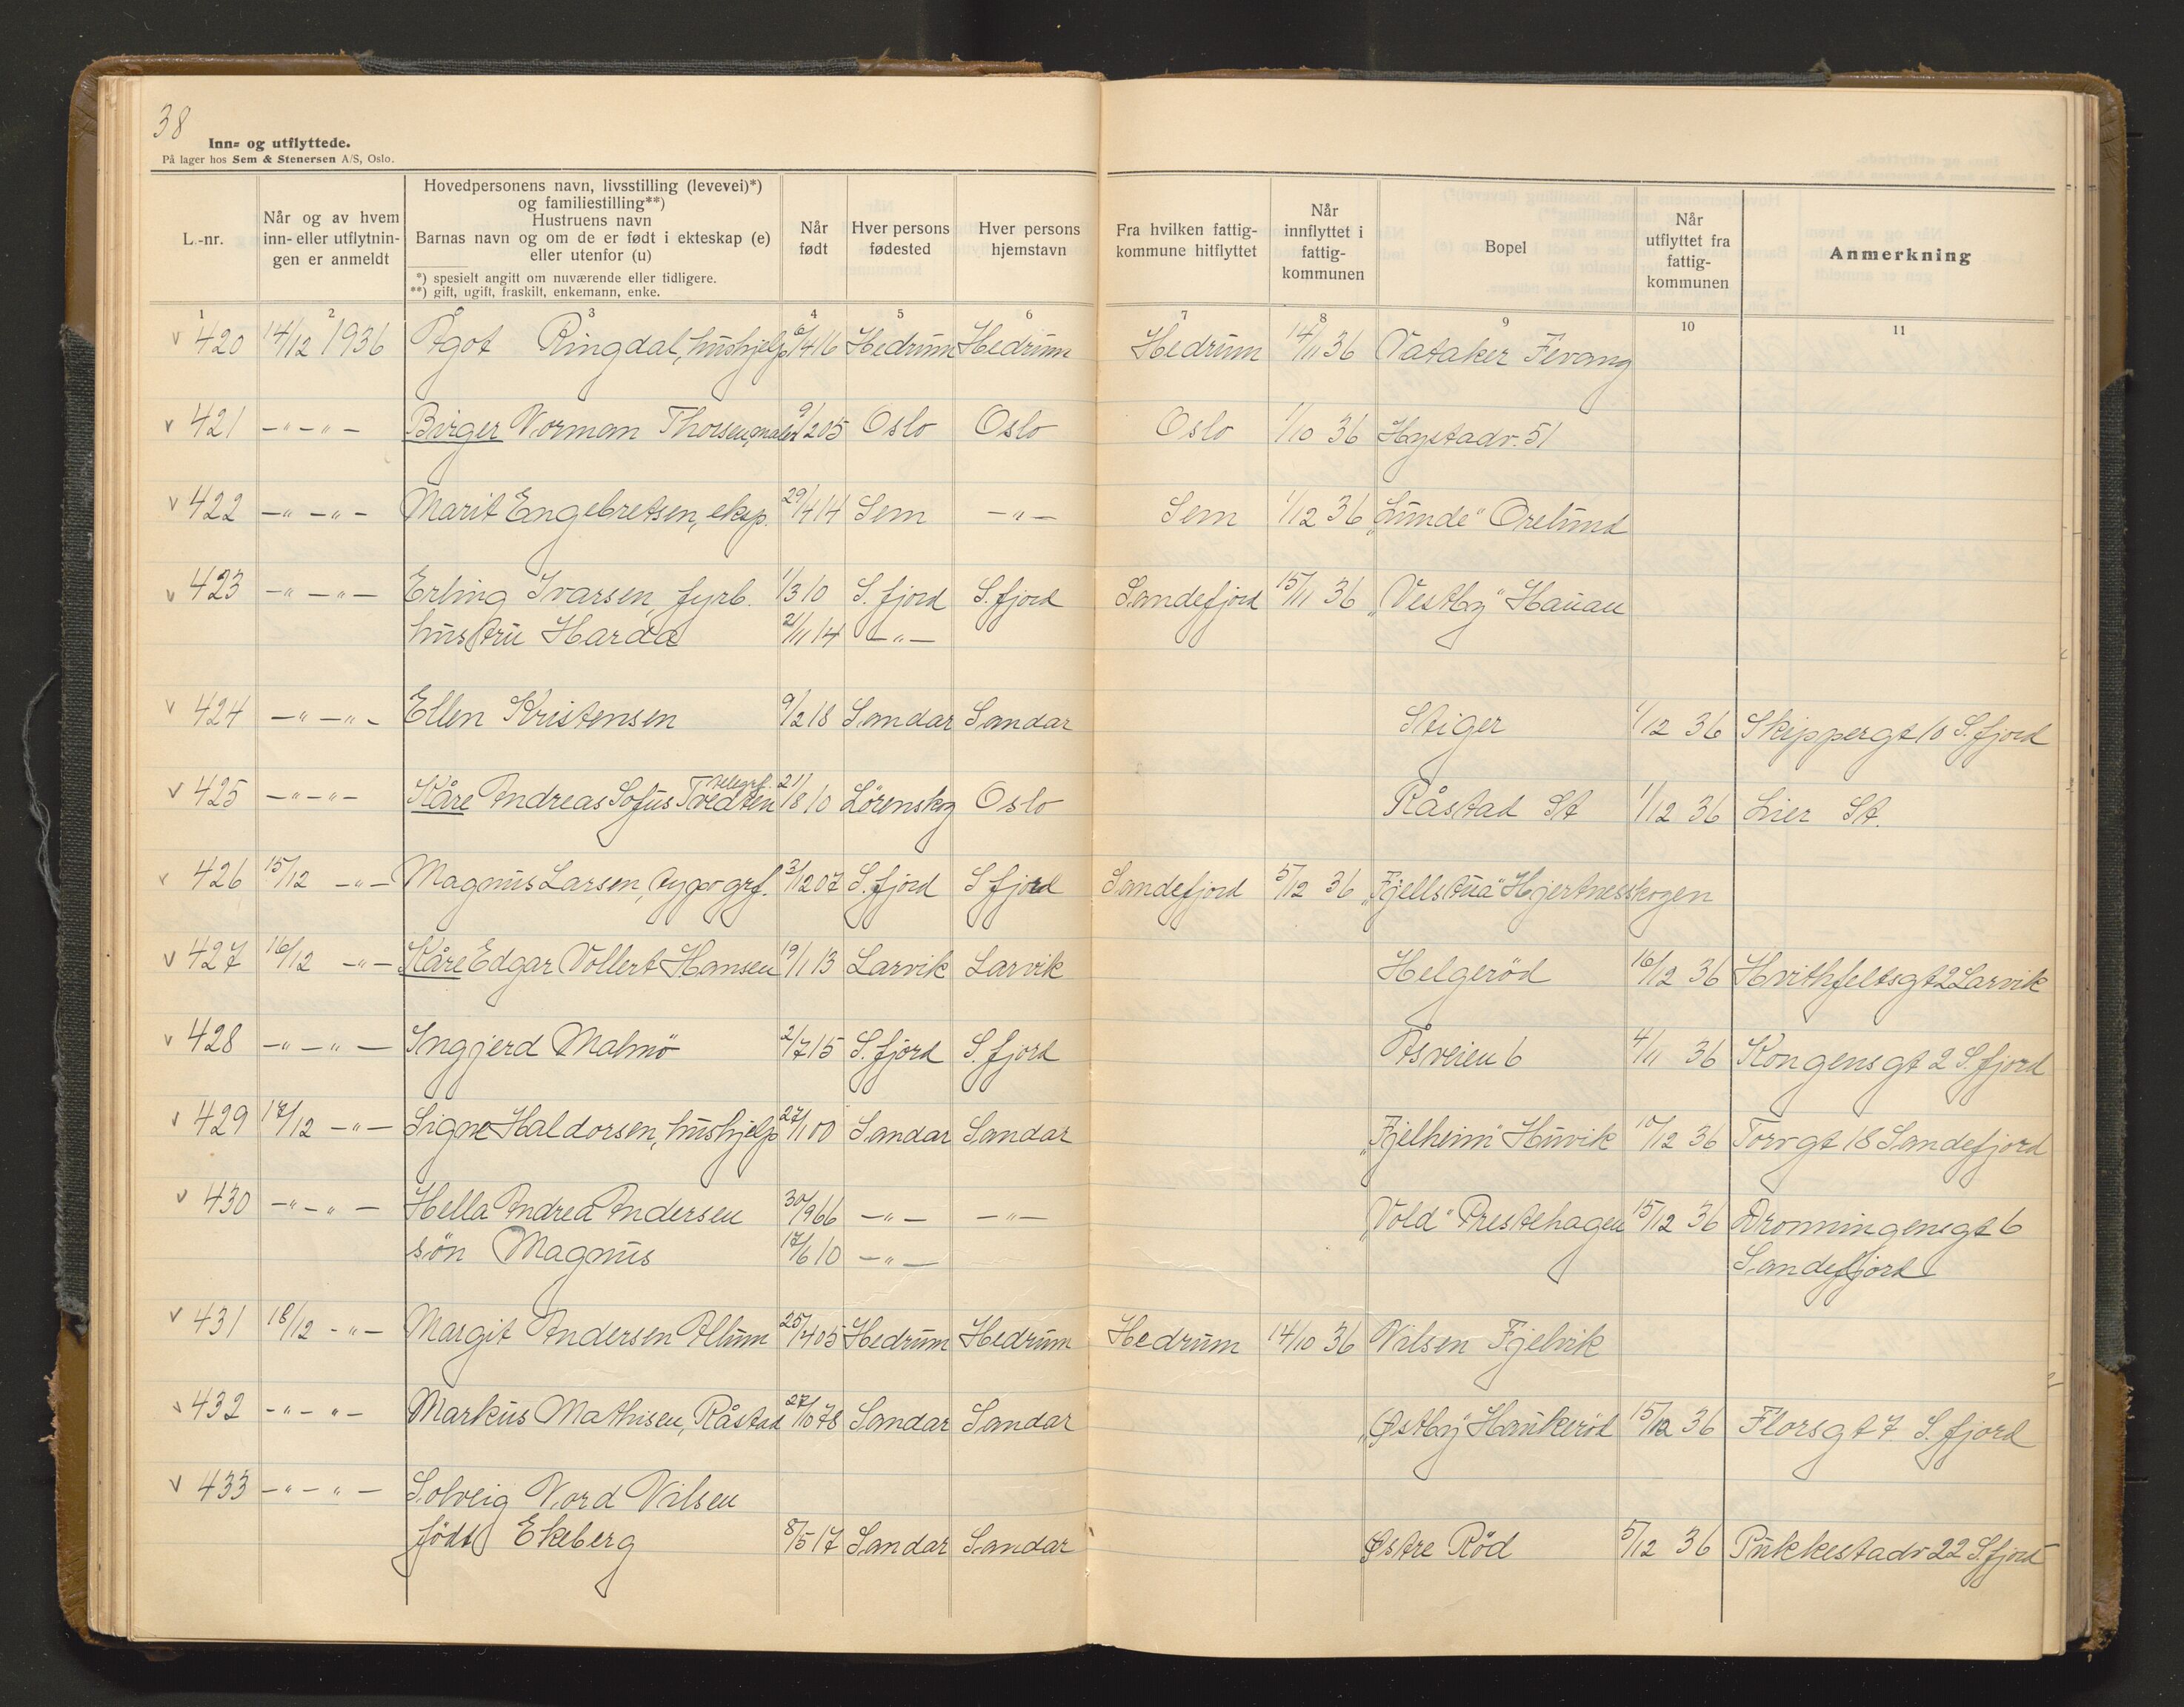 38
Inn- og utflyttede.
På lager hos Sem & Stenersen A/S, Oslo.
L.-nr.
Når og av hvem
inn- eller utflytnin-
gen er anmeldt
Hovedpersonens navn, livsstilling (levevei)*)
og familiestilling**)
Hustruens navn
Barnas navn og om de er født i ekteskap (e)
eller utenfor (u)
*) spesielt angitt om nuværende eller tidligere.
**) gift, ugift, fraskilt, enkemann, enke.
Når
født
Hver persons
fødested
Hver persons
hjemstavn
Fra hvilken fattig-
kommune hitflyttet
Når
innflyttet i
fattig-
kommunen
Bopel
Når
utflyttet fra
fattig-
kommunen
Anmerkning
1 2 3 4 5 6 7 8 9 10 11
v 420 14/12 1936 Ågot Ringdal, hushjelp 6/4 16 Hedrum Hedrum Hedrum 14/11 36 Vataker Fevang
v 421 -"-"- Birger Norman Thorsen, maler 9/2 05 Oslo Oslo Oslo 1/10 36 Hystadv. 51
v 422 -"-"- Marit Engebretsen, eksp. 29/4 14 Sem -"- Sem 1/12 36 „Lunde" Orelund
v 423 -"-"- Erling Ivarsen, fyrb. 1/3 10 S.fjord S.fjord Sandefjord 15/11 36 „Vestby" Hauan
hustru Harda 2/11 14 -"-
v 424 -"-"- Ellen Kristensen 9/2 18 Sandar Sandar Stiger 1/12 36 Skippergt 10 S.fjord
v 425 -"-"- Kåre Andreas Sofus Tvedten telegrf. 21/8 10 Lörenskog Oslo Råstad St 1/12 36 Lier St.
v 426 15/12 -"- Magnus Larsen, typogrf. 3/12 07 S.fjord S fjord Sandefjord 5/12 36 „Fjellstua" Hjertnesskogen
v 427 16/12 -"- Kåre Edgar Vollert Hansen 19/1 13 Larvik Larvik Helgeröd 16/12 36 Hvithfeltsgt 2 Larvik
v 428 -"-"- Ingjerd Malmö 2/7 15 S.fjord S.fjord Åsveien 6 4/11 36 Kongensgt 2 S.fjord
v 429 17/12 -"- Signe Haldorsen, hushjelp 27/1 00 Sandar Sandar „Fjelheim" Huvik 10/12 36 Torvgt 18 Sandefjord
v 430 -"-"- Hella Andrea Andersen 30/9 66 -"- -"- „Vold" Prestehagen 15/12 36 Dronningensgt 6
sön Magnus 17/6 10 -"- Sandefjord
v 431 18/12 -"- Margit Andersen Allum 25/4 05 Hedrum Hedrum Hedrum 14/10 36 Nilsen Fjelvik
v 432 -"-"- Markus Mathisen, Råstad 27/10 78 Sandar Sandar „Østby" Haukeröd 15/12 36 Florsgt 7 S.fjord
v 433 -"-"- Solveig Nord Nilsen
födt Ekeberg 8/5 17 Sandar Sandar Østre Röd 5/12 36 Pukkestadv 22 S.fjord